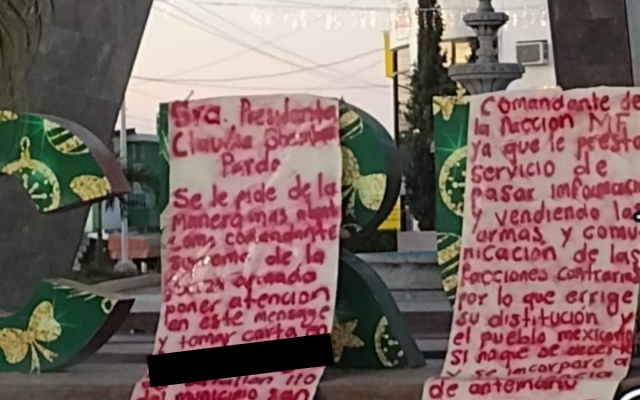 Sra. Presidenta
Claudia Sheinbaum
Pardo
Se le pide de la
manera mas atenta
como comandante
suprema de la
poner atencion
en este mensaje
y tomar carta en
del municipio san
Comandante de
la faccion MF
ya que le presta
servicio de
pasar informac
y vendiendo las
armas y comu
nicacion de las
facciones contraria
por lo que errige
su distitución y
el pueblo mexicano
si no que se
y se incorpora a
de antemano